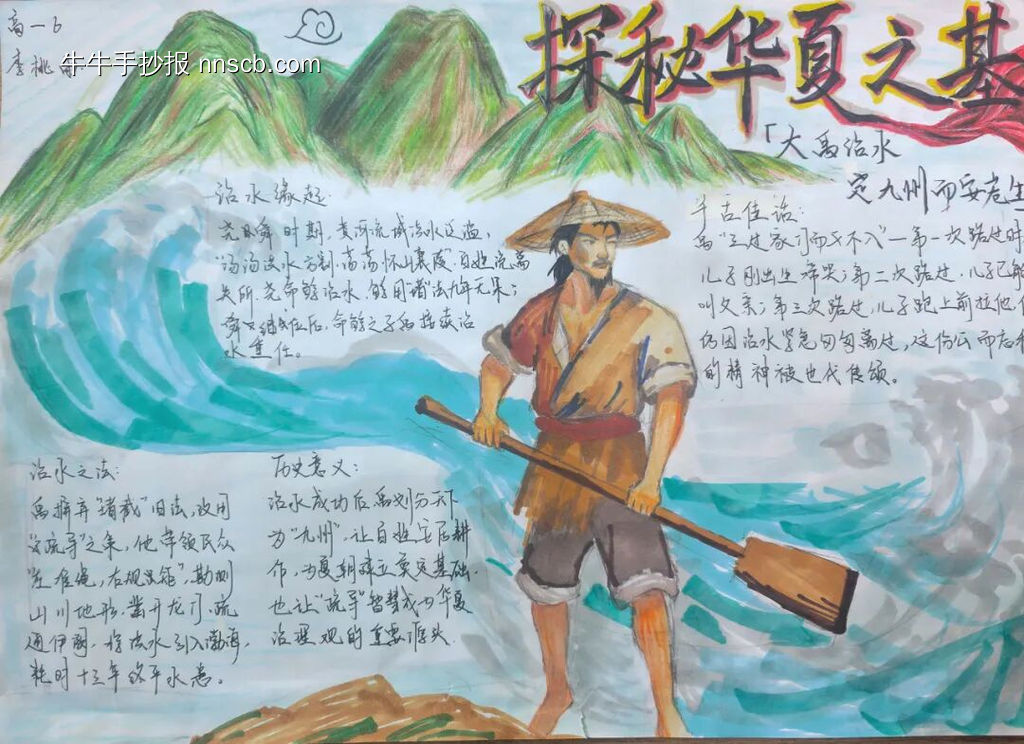 高一6
李桃
牛牛手抄报 nnscb.com
探秘华夏之基
「大禹治水
定九州而安苍生
治水缘起:
尧舜时期，黄河流域洪水泛滥，
"汤汤洪水方割，荡荡怀山襄陵"百姓流离
失所，尧命鲧治水，鲧用"堵"法九年无果；
舜继位后，命鲧之子禹接续治
水重任。
千古佳话:
禹"三过家门而不入"一第一次路过时
儿子刚出生啼哭；第二次路过，儿子已能
叫父亲；第三次路过，儿子跑上前拉他
仍因治水紧急匆匆离过，这份公而忘
的精神被世代传颂。
治水之法:
禹摒弃"堵截"旧法，改用
"疏导"之策，他带领民众
"左准绳，右规矩"，勘测
山川地形，凿开龙门，疏
通伊阙，将洪水引入渤海，
耗时十三年终平水患。
历史意义：
治水成功后，禹划分天下
为"九州"，让百姓安居耕
作，为夏朝建立奠定基础，
也让"疏导"智慧成为华夏
治理观的重要源头.